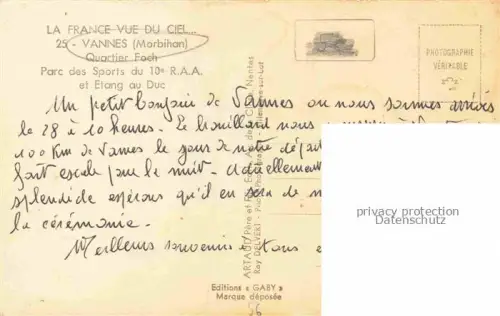 LA FRANCE VUE DU CIEL...
25 - VANNES (Morbihan)
Quartier Foch
Parc des Sports du 10e R.A.A.
et Etang au Duc
PHOTOGRAPHIE
VÉRITABLE
Un petit bonjour de Vannes ou nous sommes arrivés
le 28 à 10 heures. Le brouillard nous
100 km de Vannes le jour de notre dépa
fait escale pour la nuit. Actuellement
splendide espérons qu'il en sera de m
la cérémonie.
Meilleurs souvenirs à tous
Editions « GABY »
Marque déposée
ARTAUD Père et Fils
Ray DELVERT
privacy protection
Datenschutz